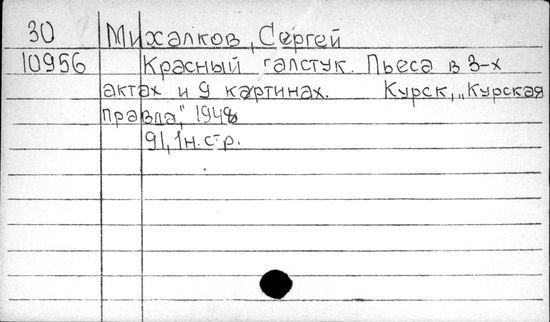 30 Михалков, Сергей
10956 Красный галстук. Пьеса в 3-х
актах и 9 картинах. Курск, „Курская
правда", 1948
91, 1 н. стр.